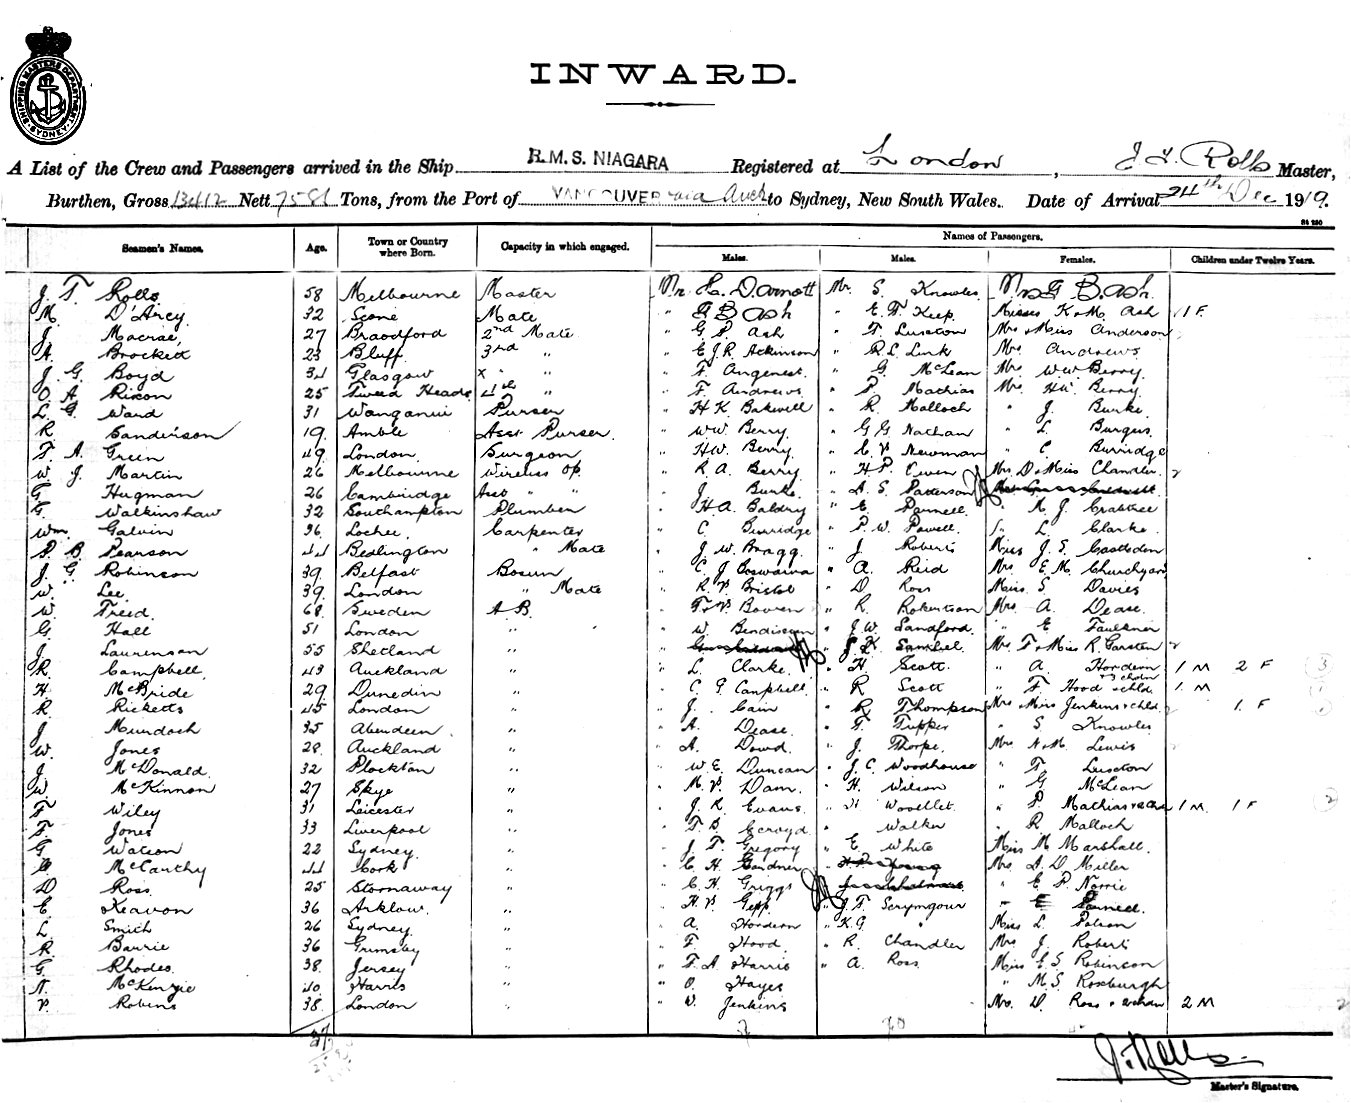 SHIPPING MASTERS DEPARTMENT SYDNEY
INWARD.
A List of the Crew and Passengers arrived in the Ship R.M.S. NIAGARA Registered at London, J. T. Rolls Master,
Burthen, Gross 13412 Nett 7581 Tons, from the Port of VANCOUVER via Auck to Sydney, New South Wales. Date of Arrival 24th Dec 1919.
Seamen's Names. Age. Town or Country where Born. Capacity in which engaged. Names of Passengers.
Males. Males. Females. Children under Twelve Years.
J. T. Rolls 58 Melbourne Master Mr H. D. Arnott Mr. S. Knowles Mrs G B. Ash.
M. D'Arcy 32 Scone Mate " G B Ash " E. F. Keep Misses K & M. Ash 1 F
J. Macrae 27 Broadford 2nd Mate " G. P. Ash " F. Luxton Mrs & Miss Anderson
A. Brockett 23 Bluff 3rd " " E J. R. Atkinson " R. L. Link Mrs Andrews
J. G. Boyd 34 Glasgow x " " " F. " G. McLean Mrs W. W. Berry
O. A. Rixon 25 Tweed Heads 4th " " F. Andrews " P. Mathias Mrs. H W. Berry
L. G. Ward 31 Wanganui Purser " H K. Bakewell " R. Malloch " J. Burke
R. Sanderson 19 Amble Asst. Purser " W W. Berry " G G Nathan " L. Burgus
F. A. Green 49 London Surgeon " H W. Berry " C. V. Newman " C Burridge
W. J. Martin 26 Melbourne Wireless Op. " R. A. Berry " H P. Ewen Mrs. D & Miss Chandler
G. Hugman 26 Cambridge Asst " " " J. Burke " A. S. Patterson
G. Walkinshaw 32 Southampton Plumber " H A. Baldry " E. Parnell " A. J. Crabtree
Wm. Galvin 36 Lochee Carpenter " C. Burridge " P. W. Powell " L. Clarke
P. B. Pearson 44 Bedlington " Mate " J. W. Bragg " J Roberts Miss J. S. Castledon
J. G. Robinson 39 Belfast Bosun " C. J. " A. Reid Mrs. E. M. Churchyard
W. Lee 39 London " Mate " R. V. Bristol " D. Ross Miss S. Davies
W. Freed 68 Sweden A.B. " F. V. Bowen " R. Robertson Mrs. A. Dease
G. Hall 51 London " " W. " J. W. Sandford " E Faulkner
J. Laurenson 55 Shetland " " J. K. Mrs. F & Miss R. Garsten
R. Campbell 43 Auckland " " L. Clarke " H. Scott " A Hordern & 3 chdn 1 M 2 F
H. McBride 29 Dunedin " " C. G. Campbell " R Scott " F. Hood & chld 1 M
R Ricketts 45 London " " J. Cain " R Thompson Mrs Miss Jenkins & chld 1 F
J Murdoch 35 Aberdeen " " A. Dease " F. Tupper " S Knowles
W. Jones 28 Auckland " " A. Dowd " J. Thorpe Mrs. N. M. Lewis
J. McDonald 32 Plockton " " W. E. Duncan " J. C. Woodhouse " F Luxton
W. McKinnon 27 Skye " " M. V. Dam " H. Wilson " G McLean
F Wiley 31 Leicester " " J. R. Evans " H Woollet " P. Mathias 1 M 1 F
F. Jones 33 Liverpool " " T. S. Ecroyd " Walker " R Malloch
G Watson 22 Sydney " " J. F. Gregory " E White Miss M Marshall
McCarthy 44 Cork " " C. H. Gardner Mrs. A. D. Miller
D Ross 25 Stornaway " " C. H. Griggs " E. P. Norrie
E. Keavon 36 Arklow " " H. V. Gepp " J. F. Scrymgour " E Parnell
L. Smith 26 Sydney " " A. Hordern " K. G. " Miss L. Polson
R. Barrie 36 Grimsby " " F Hood " R. Chandler Mrs. J. Roberts
G. Rhodes 38 Jersey " " F. A. Harris " A. Ross Miss E. S. Robinson
N. McKenzie 40 Harris " " O. Hayes " M. S. Roxburgh
V. Robins 38 London " " V. Jenkins Mrs. D. Ross 2 M
37
J. T. Rolls
Master's Signature.